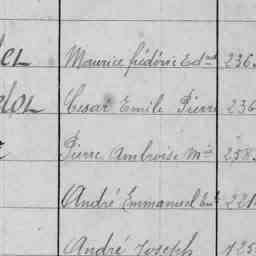 Maurice frédéric Edmd 236
Cesar Emile Pierre 236
Pierre Ambroise Mie 258
André Emmanuel 221
André Joseph 725